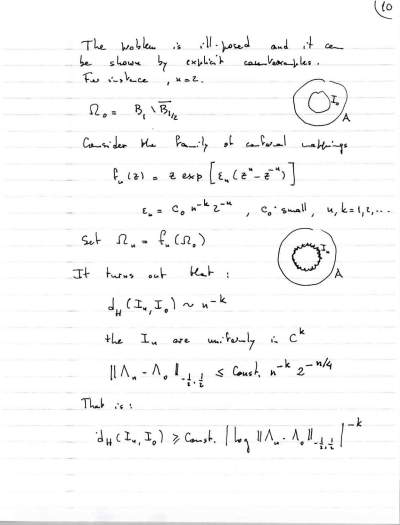 10
The problem is ill-posed and it can
be shown by explicit counterexamples.
For instance, n=2.
Ω₀ = B₁ \ B̅₁/₂
I₀
A
Consider the family of conformal mappings
fₙ(z) = z exp [εₙ(zⁿ - z⁻ⁿ)]
εₙ = C₀ n⁻ᵏ 2⁻ⁿ , C₀ small, n, k = 1, 2, ...
Set Ωₙ = fₙ(Ω₀)
Iₙ
A
It turns out that :
d_H(Iₙ, I₀) ~ n⁻ᵏ
the Iₙ are uniformly in Cᵏ
‖Λₙ - Λ₀‖_{-½,½} ≤ Const. n⁻ᵏ 2^{-n/4}
That is :
d_H(Iₙ, I₀) ≥ Const. |log ‖Λₙ - Λ₀‖_{-½,½}|⁻ᵏ